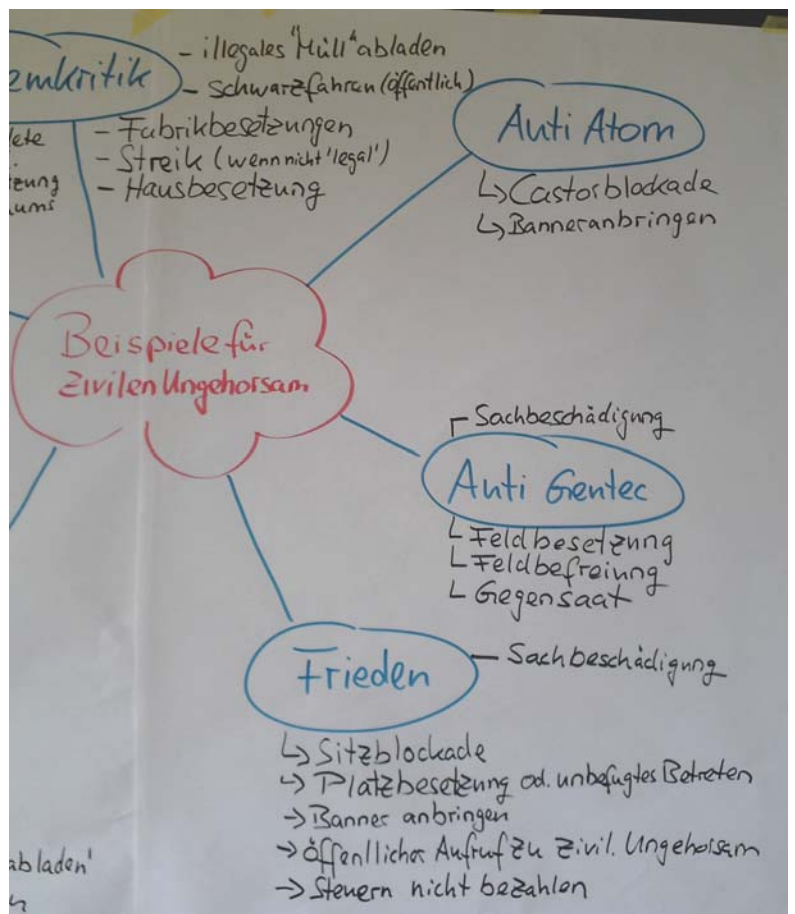 emkritik
- illegales "Müll" abladen
- Schwarzfahren (öffentlich)
- Fabrikbesetzungen
- Streik (wenn nicht 'legal')
- Hausbesetzung
lete
zung
ums
Anti Atom
↳ Castorblockade
↳ Banneranbringen
Beispiele für
Zivilen Ungehorsam
Sachbeschädigung
Anti Gentec
Feldbesetzung
Feldbefreiung
Gegensaat
Frieden
- Sachbeschädigung
↳ Sitzblockade
↳ Platzbesetzung od. unbefugtes Betreten
→ Banner anbringen
→ öffentlicher Aufruf zu zivil. Ungehorsam
→ Steuern nicht bezahlen
abladen'
n